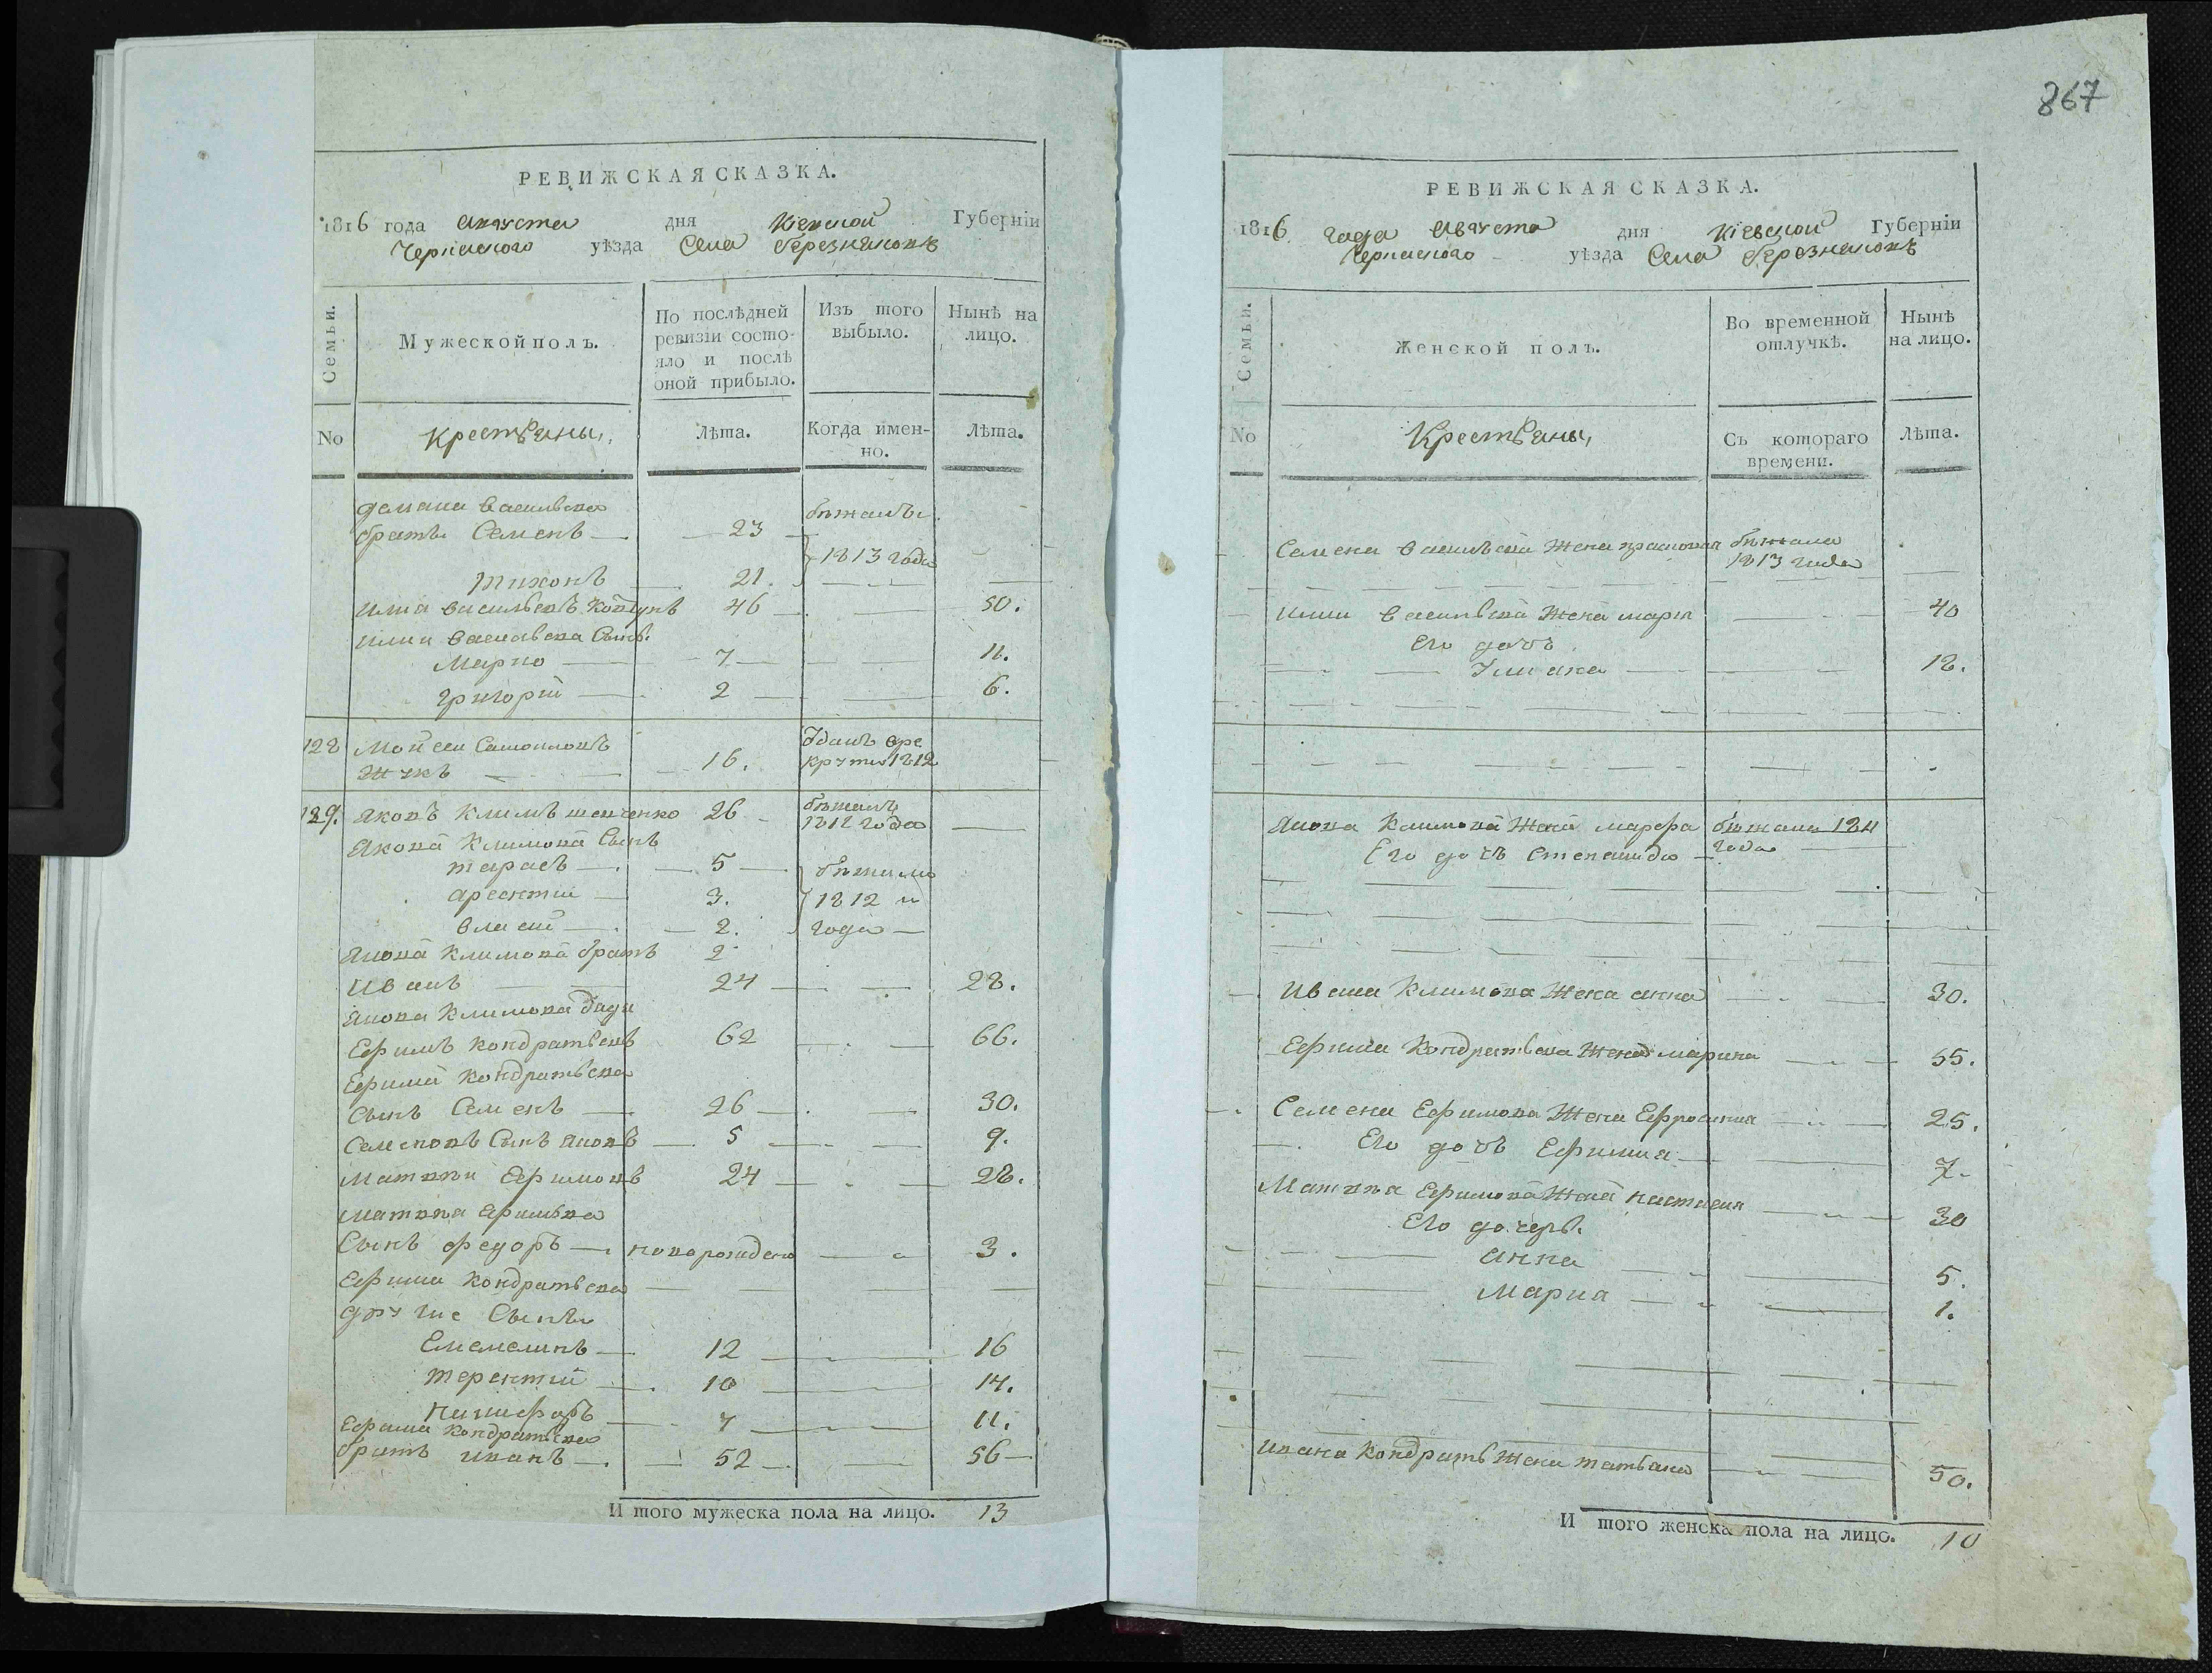 867
РЕВИЖСКАЯ СКАЗКА.
1816 года августа дня Кіевской Губерніи
Черкаского уѣзда Села березняковъ
Семьи.
Мужеской полъ.
По послѣдней ревизіи состо-
яло и послѣ
оной прибыло.
Изъ того
выбыло.
Нынѣ на
лицо.
No
Крестьяны,
Лѣта.
Когда имен-
но.
Лѣта.
Васильева бѣжалы
братъ Семенъ 23
1813 года
тихонъ 21.
илиа васильевъ 46 50.
илии васильева Сынъ
Марко 7 11.
григорій 2 6.
128 Мойсеи
Жукъ 16. Зданъ 1812
129. яковъ Климъ шевченко 26 бѣжалъ
1812 года
Якова Климова Сынъ
тарасъ 5 бѣжали
арсентии 3. 1812
власии 2. года
Якова Климова братъ 2
Иванъ 24 28.
Якова Климова дядя
Ефимъ Кондратьевъ 62 66.
Ефима Кондратьева
Сынъ Семенъ 26 30.
Семеновъ Сынъ яковъ 5 9.
Матвѣи Ефимовъ 24 28.
Матвѣя Ефимова
Сынъ федоръ новорожденъ 3.
Ефима Кондратьева
другие Сыны
Емелианъ 12 16
терентии 10 14.
Никифоръ 7 11.
Ефима Кондратьева
братъ иванъ 52 56
И того мужеска пола на лицо. 13
РЕВИЖСКАЯ СКАЗКА.
1816 года Августа дня Кіевской Губерніи
Черкаского уѣзда Села березняковъ
Семьи.
Женской полъ.
Во временной
отлучкѣ.
Нынѣ
на лицо.
No
Крестьяны,
Съ котораго
времени.
Лѣта.
Семена васильева Жена бѣжала
1813 года
илии васильева Жена мария 40
Его дочь
Улиана 12.
Якова Климова Жена марфа бѣжали
Его дочь Степанида года
Ивана Климова Жена анна 30.
Ефима Кондратьева Жена марина 55.
Семена Ефимова Жена Ефросиния 25.
Его дочь Ефимиа 7.
Матвѣя Ефимова Жена настасия 30
Его дочеры.
Анна 5.
Мариа 1.
ивана Кондрать Жена татьана 50.
И того женска пола на лицо. 10